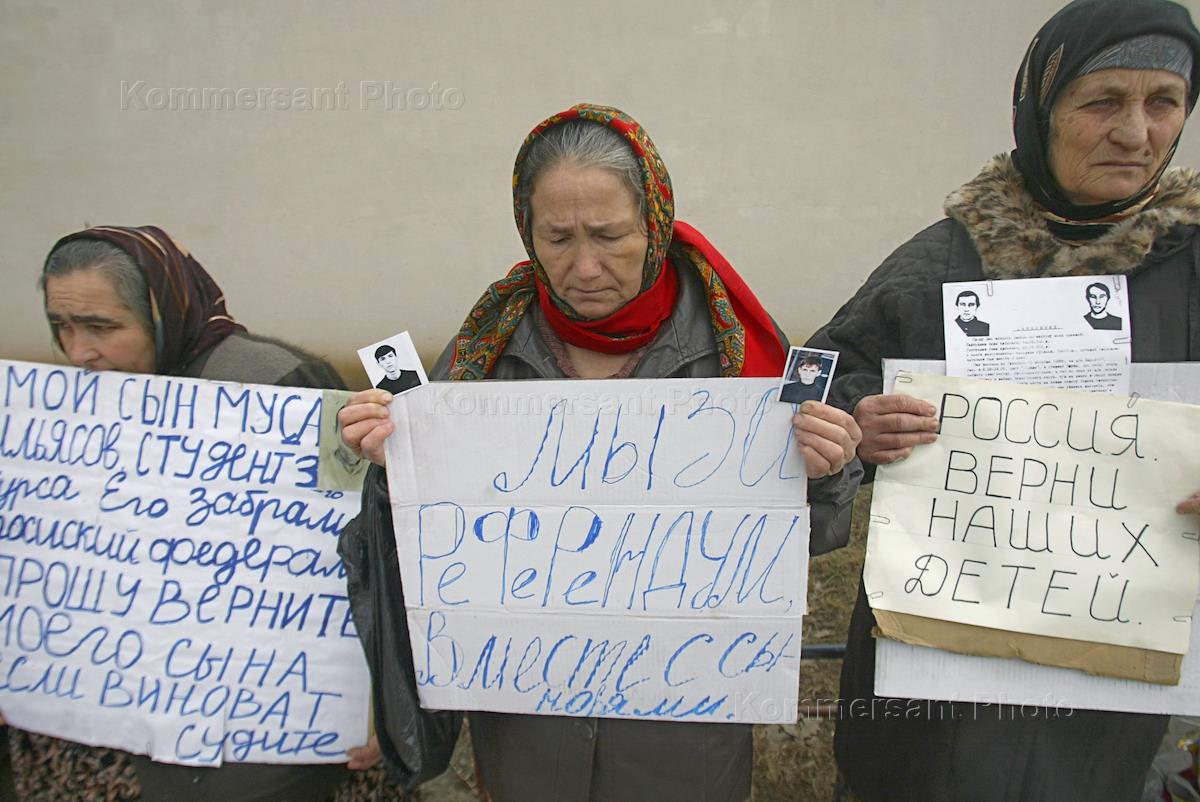 Kommersant Photo
МОЙ СЫН МУСА
ИЛЬЯСОВ, СТУДЕНТ 3-го
курса Его забрали
российский федерал
ПРОШУ ВЕРНИТЕ
моего СЫНА
ЕСЛИ ВИНОВАТ
судите
Kommersant Photo
МЫ ЗА
РеФеРеНДУМ,
Вместе с сы-
новями.
РОССИЯ.
ВЕРНИ
НАШИХ
ДЕТЕЙ.
Kommersant Photo